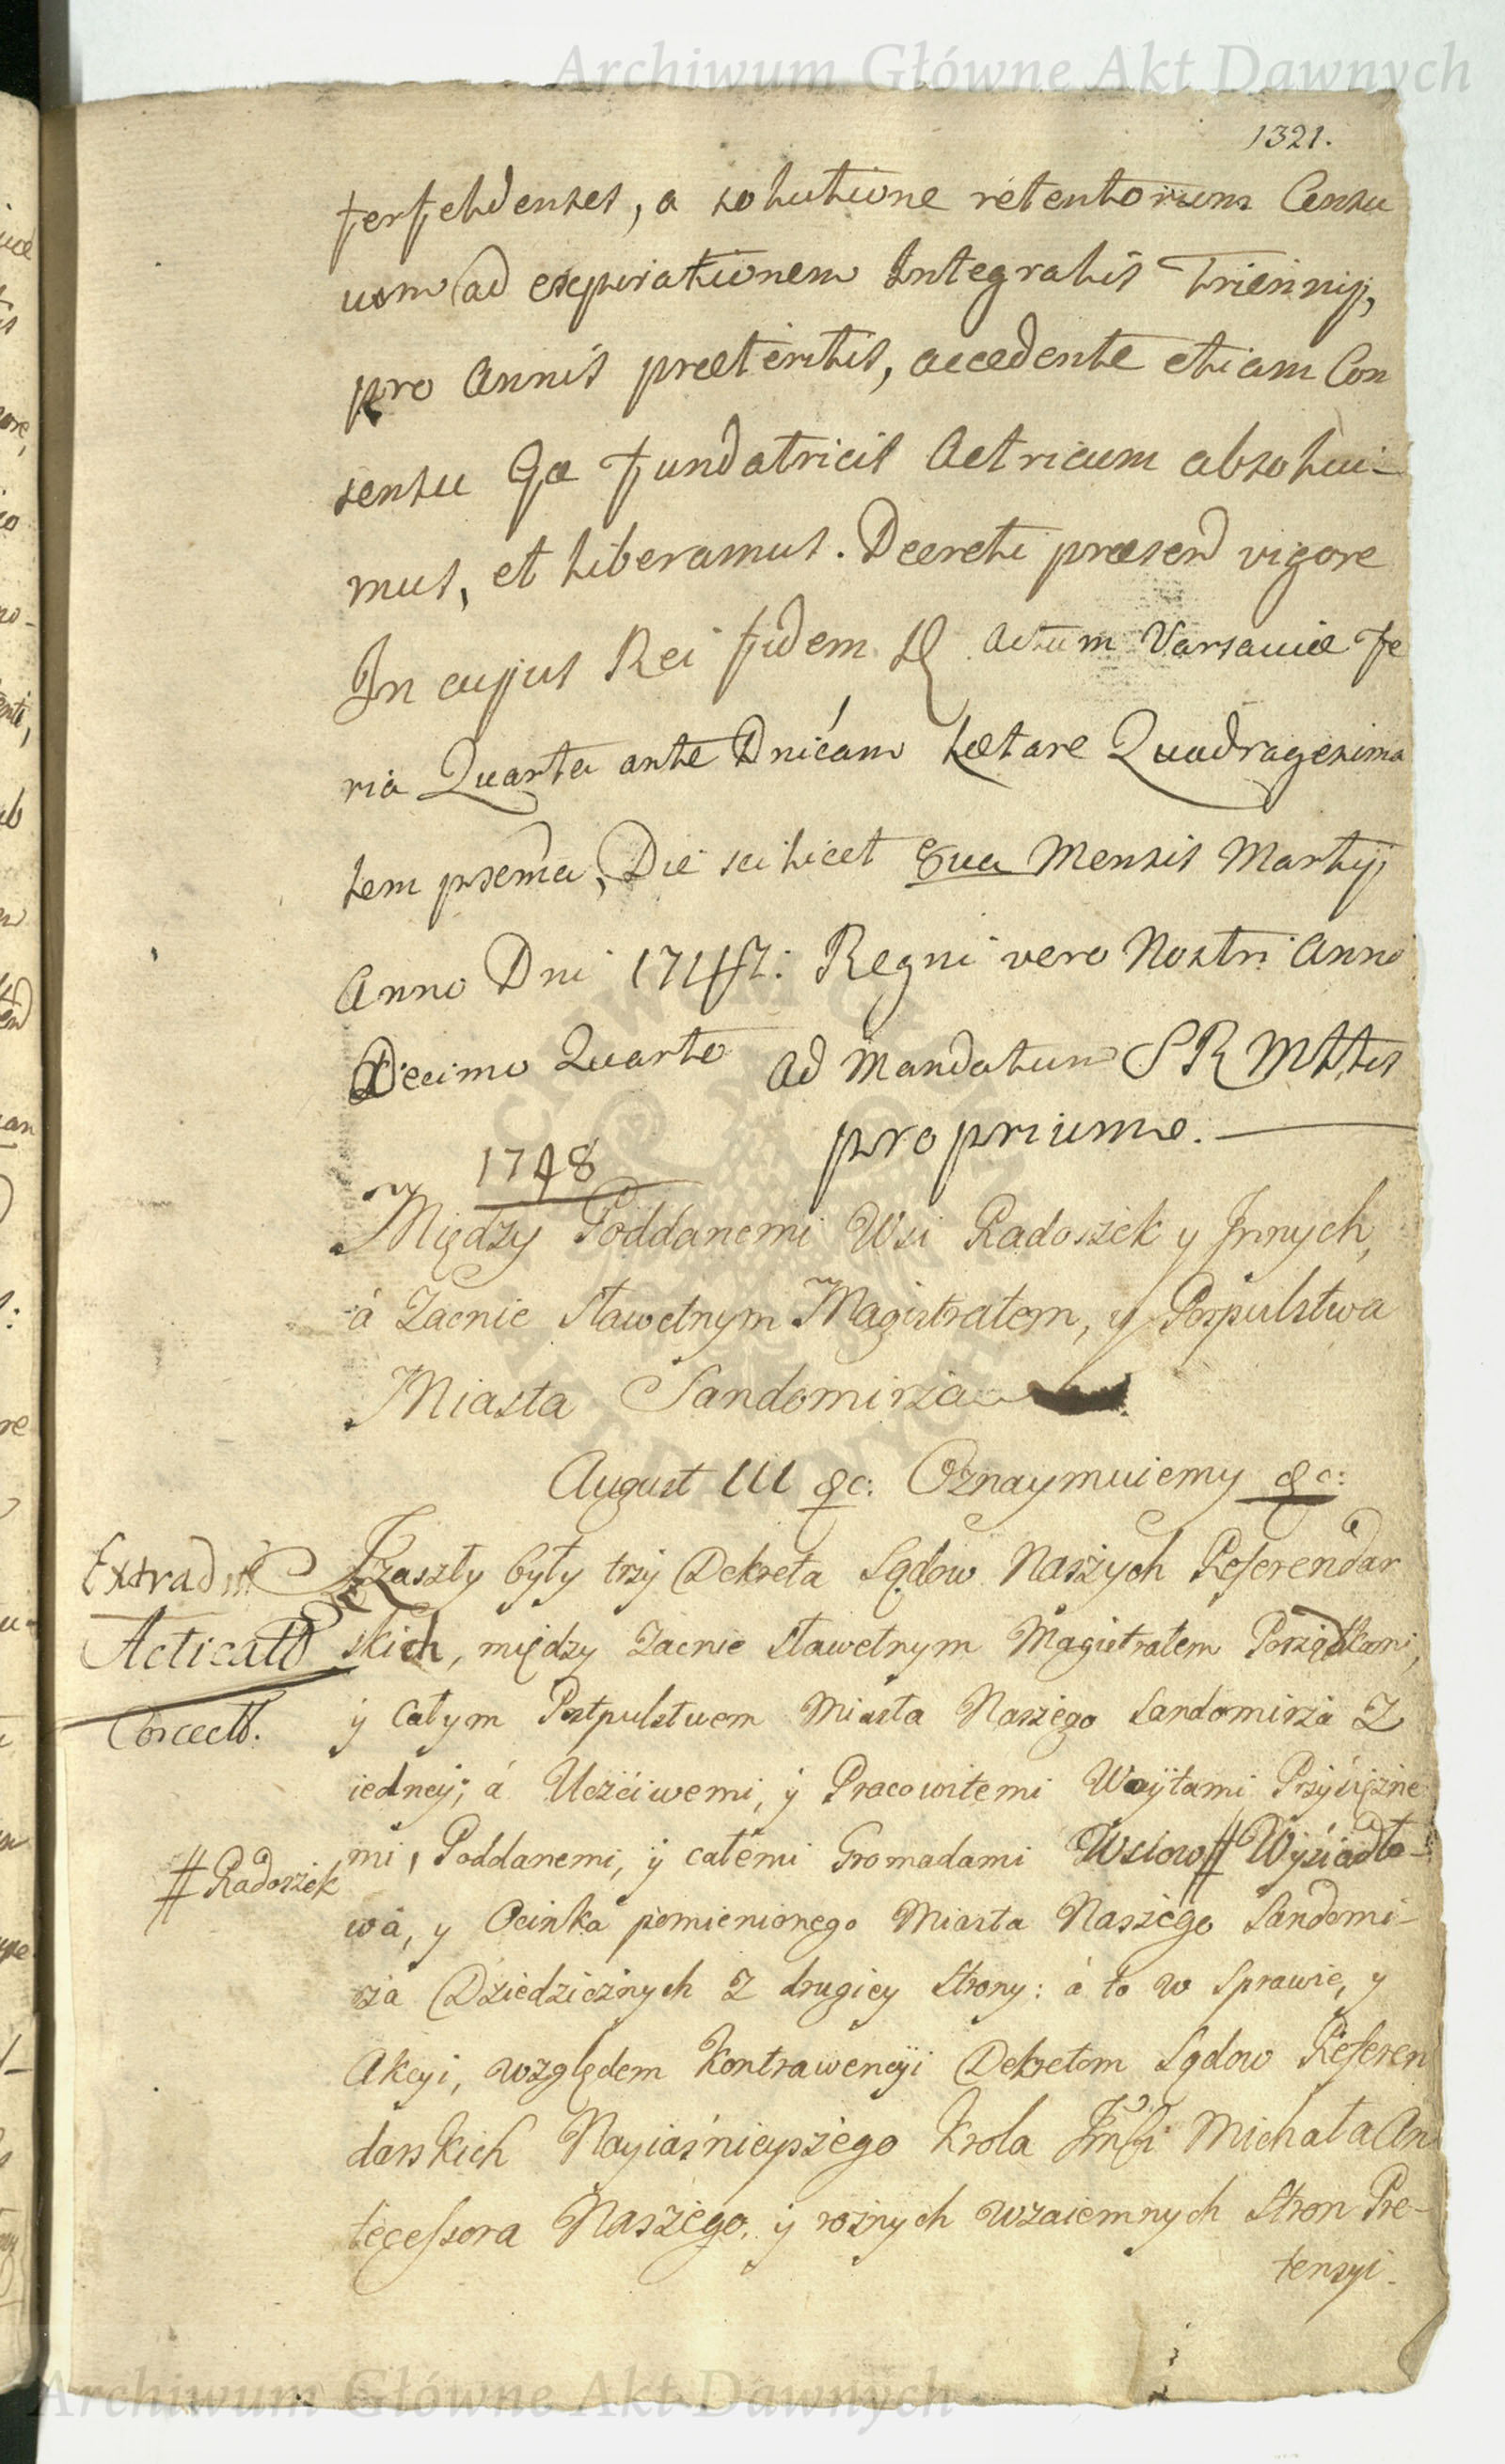 Archiwum Główne Akt Dawnych
1321.
a solutione retentorum Censu
um ad expirationem Integralis Triennij,
pro Annis præteritis, accedente etiam Con
sensu Gæ Fundatricis Actricum absolvi-
mus, et liberamus. Decreti præsen vigore
In cujus Rei fidem &. Actum Varsaviæ Fe
ria Quarta ante Dnicam Lætare Quadragesima
lem Die scilicet Mensis Martij
Anno Dni 1747: Regni vero Nostri Anno
Decimo Quarto Ad Mandatum SRMttis
proprium.
1748
Między Poddanemi Wsi Radoszek y Innych,
á Zacnie Sławetnym Magistratem, y Pospulstwa
Miasta Sandomirza
August III &c: Oznaymuiemy &c:
Extrad
Zaszły były trzy Dekreta Sądow Naszych Referendar
Acticatt
skich, między Zacnie Sławetnym Magistratem Porządkami,
Correctt.
ÿ Całym Postpulstwem Miasta Naszego Sandomirza Z
iedney; á Uczciwemi, ÿ Pracowitemi Woÿtami Przysiężne
mi, Poddanemi, ÿ całemi Gromadami Wsiow # Wysiadło-
# Radoszek
wa, y Ocinka pomienionego Miasta Naszego Sandomi-
rza Dziedzicznych Z drugiey Strony: á to w Sprawie, y
Akcyi, względem Kontrawencÿi Dekretom Sądow Referen
darskich Nayiaśnieyszego Krola Jmści Michała An
tecessora Naszego, ÿ rożnych wzaiemnych Stron Pre-
tensyi.
Archiwum Główne Akt Dawnych